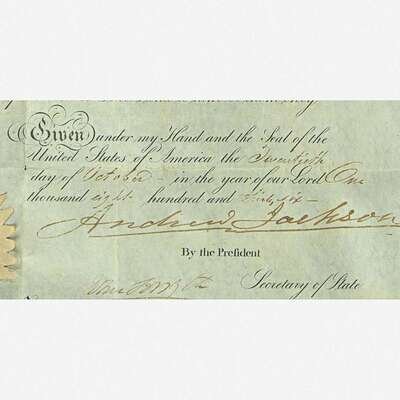 Given under my Hand and the Seal of the
United States of America the Twentieth
day of October in the year of our Lord One
thousand eight hundred and Thirty six
Andrew Jackson
By the President
Secretary of State